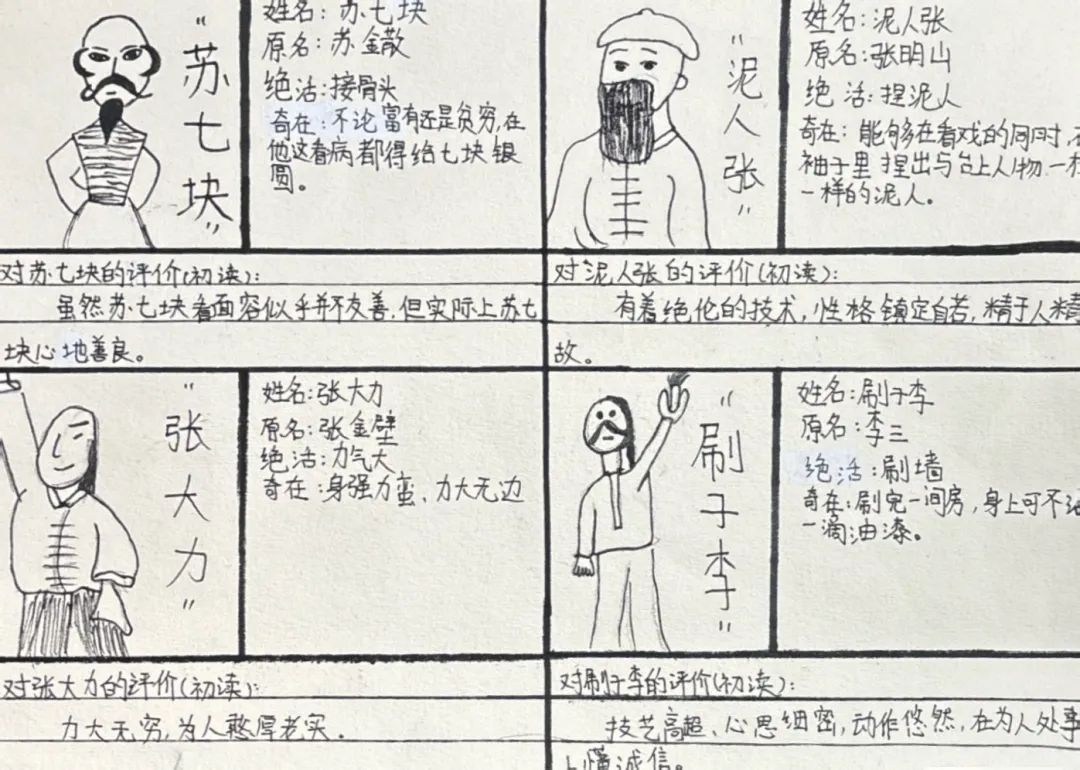 "苏七块"
姓名：苏七块
原名：苏金散
绝活：接骨头
奇在：不论富有还是贫穷，在
他这看病都得给七块银
圆。
对苏七块的评价(初读)：
虽然苏七块看面容似乎并不友善，但实际上苏七
块心地善良。
"泥人张"
姓名：泥人张
原名：张明山
绝活：捏泥人
奇在：能够在看戏的同时，在
袖子里捏出与台上人物一模
一样的泥人。
对泥人张的评价(初读)：
有着绝伦的技术，性格镇定自若，精于人精
故。
"张大力"
姓名：张大力
原名：张金璧
绝活：力气大
奇在：身强力蛮、力大无边
对张大力的评价(初读)：
力大无穷，为人憨厚老实。
"刷子李"
姓名：刷子李
原名：李三
绝活：刷墙
奇在：刷完一间房，身上可不沾
一滴油漆。
对刷子李的评价(初读)：
技艺高超、心思细密，动作悠然，在为人处事
上懂诚信。